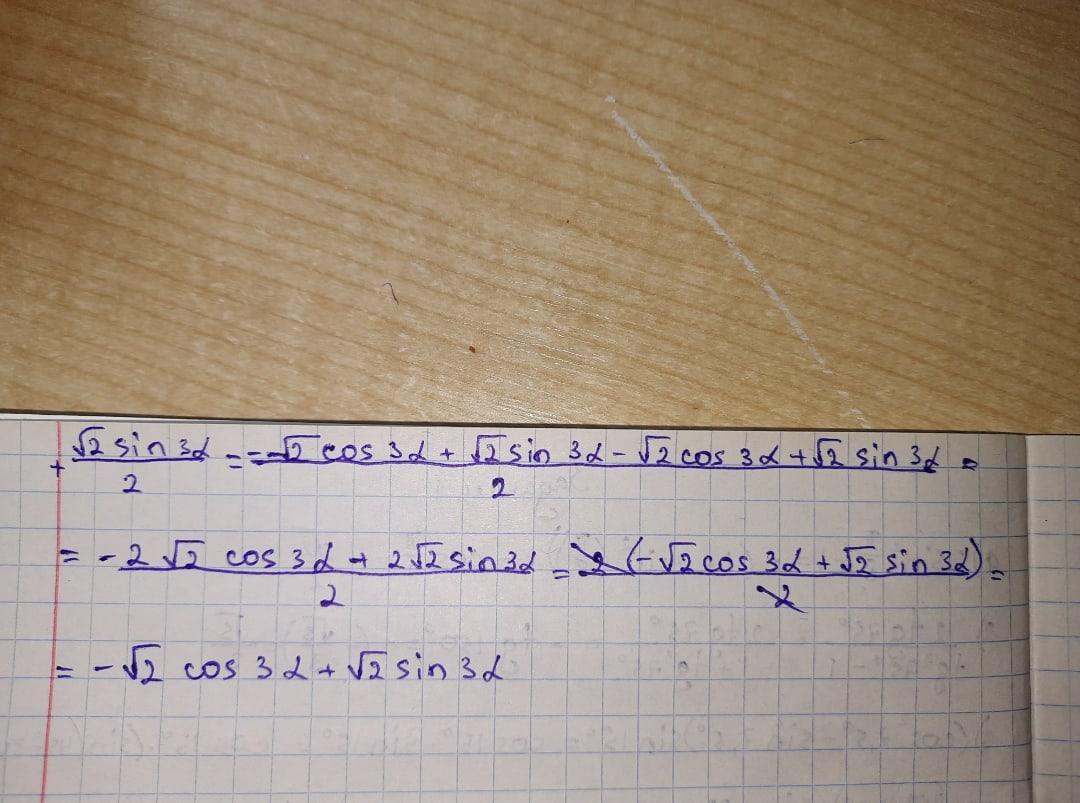 + √2 sin 3α / 2 = -√2 cos 3α + √2 sin 3α - √2 cos 3α + √2 sin 3α / 2 =
= -2√2 cos 3α + 2√2 sin 3α / 2 = 2 (-√2 cos 3α + √2 sin 3α) / 2 =
= -√2 cos 3α + √2 sin 3α